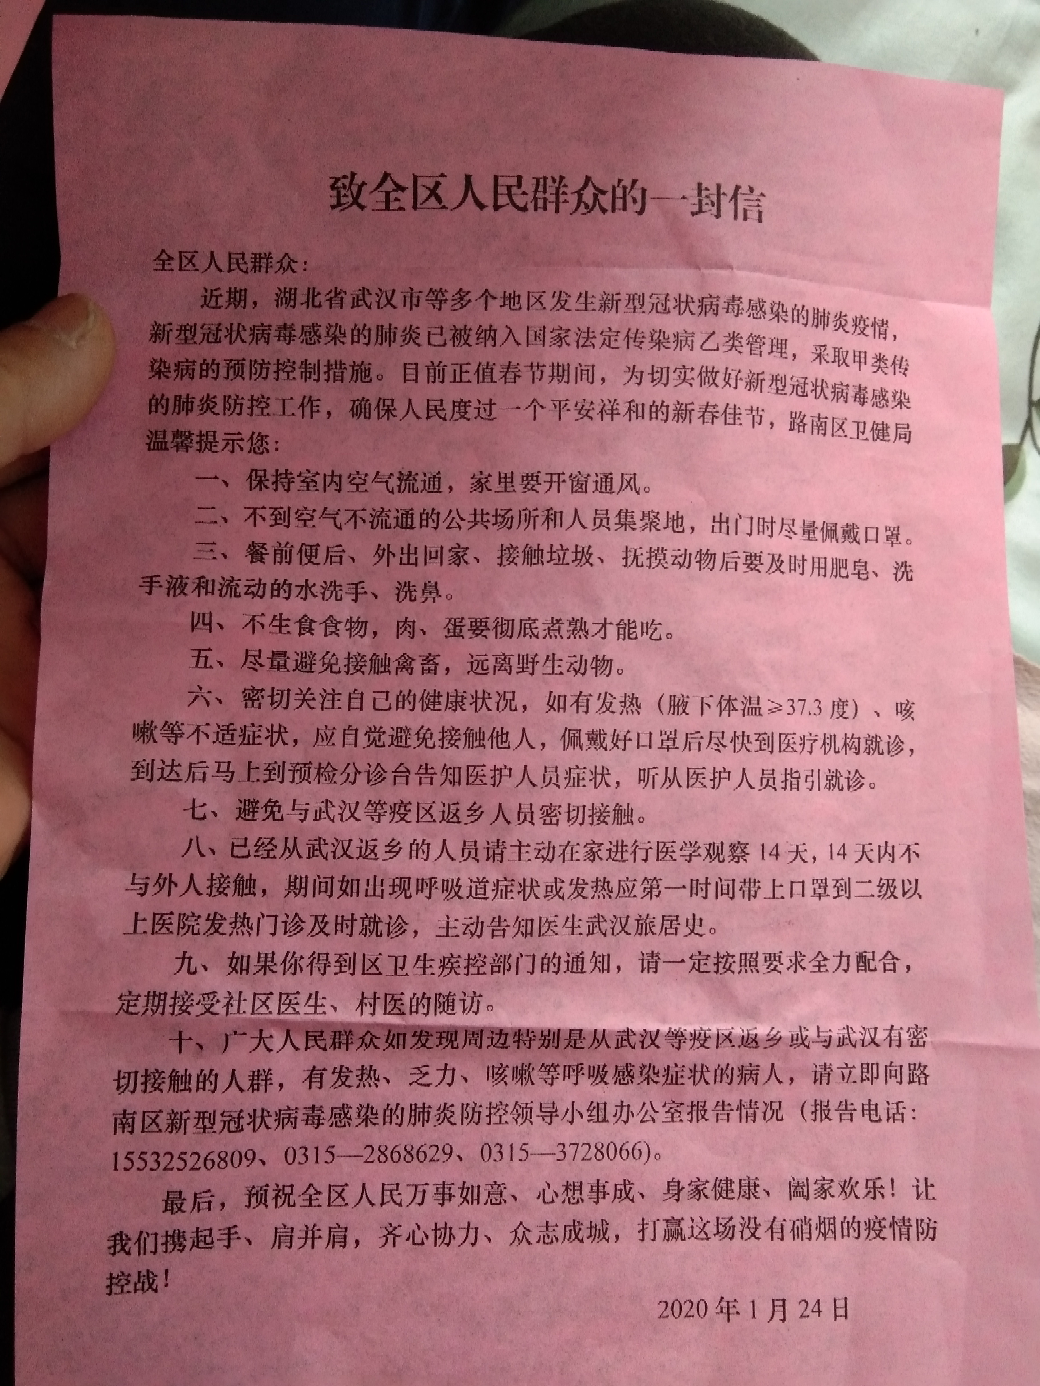 致全区人民群众的一封信
全区人民群众：
近期，湖北省武汉市等多个地区发生新型冠状病毒感染的肺炎疫情，
新型冠状病毒感染的肺炎已被纳入国家法定传染病乙类管理，采取甲类传
染病的预防控制措施。目前正值春节期间，为切实做好新型冠状病毒感染
的肺炎防控工作，确保人民度过一个平安祥和的新春佳节，路南区卫健局
温馨提示您：
一、保持室内空气流通，家里要开窗通风。
二、不到空气不流通的公共场所和人员集聚地，出门时尽量佩戴口罩。
三、餐前便后、外出回家、接触垃圾、抚摸动物后要及时用肥皂、洗
手液和流动的水洗手、洗鼻。
四、不生食食物，肉、蛋要彻底煮熟才能吃。
五、尽量避免接触禽畜，远离野生动物。
六、密切关注自己的健康状况，如有发热（腋下体温≥37.3 度）、咳
嗽等不适症状，应自觉避免接触他人，佩戴好口罩后尽快到医疗机构就诊，
到达后马上到预检分诊台告知医护人员症状，听从医护人员指引就诊。
七、避免与武汉等疫区返乡人员密切接触。
八、已经从武汉返乡的人员请主动在家进行医学观察 14 天，14 天内不
与外人接触，期间如出现呼吸道症状或发热应第一时间带上口罩到二级以
上医院发热门诊及时就诊，主动告知医生武汉旅居史。
九、如果你得到区卫生疾控部门的通知，请一定按照要求全力配合，
定期接受社区医生、村医的随访。
十、广大人民群众如发现周边特别是从武汉等疫区返乡或与武汉有密
切接触的人群，有发热、乏力、咳嗽等呼吸感染症状的病人，请立即向路
南区新型冠状病毒感染的肺炎防控领导小组办公室报告情况（报告电话：
15532526809、0315—2868629、0315—3728066)。
最后，预祝全区人民万事如意、心想事成、身家健康、阖家欢乐！让
我们携起手、肩并肩，齐心协力、众志成城，打赢这场没有硝烟的疫情防
控战！
2020 年 1 月 24 日